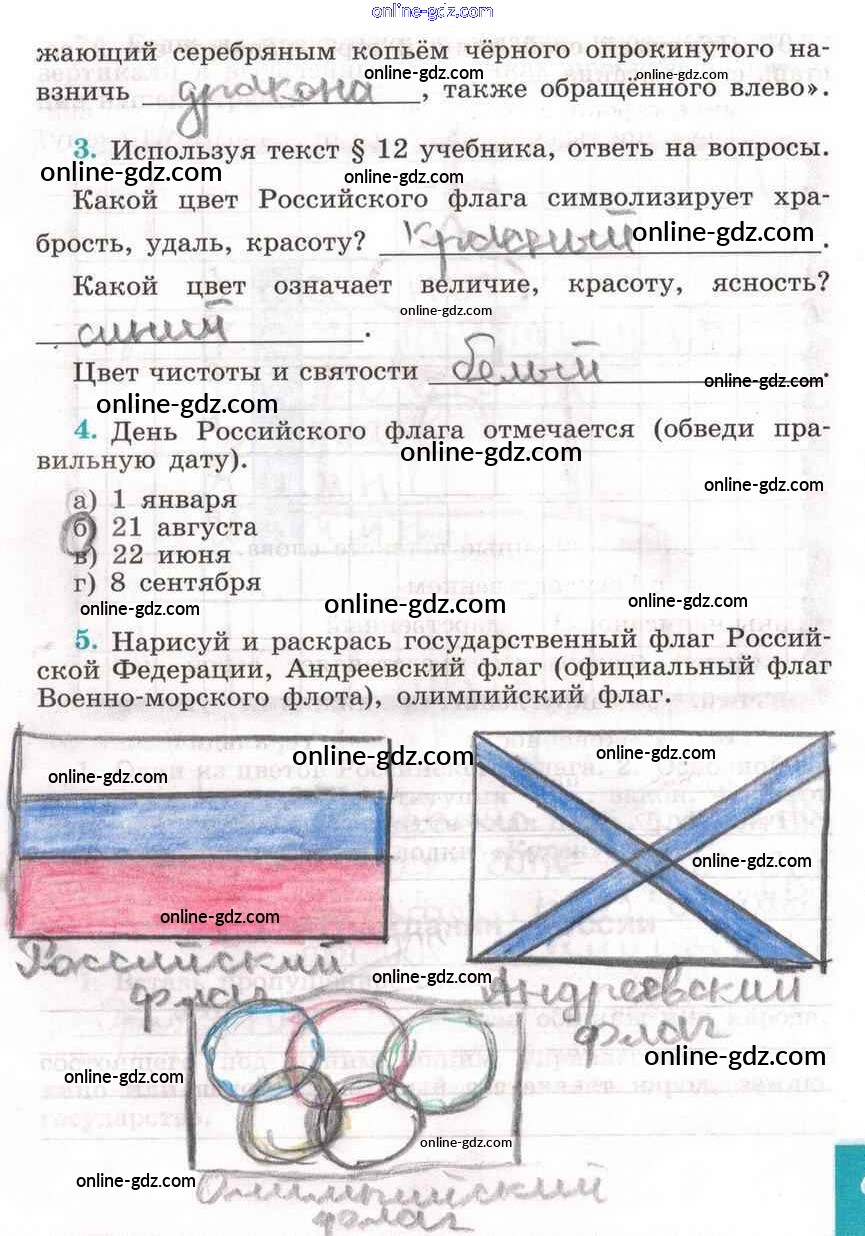 online-gdz.com
жающий серебряным копьём чёрного опрокинутого на-
online-gdz.com
online-gdz.com
взничь дракона, также обращённого влево».
3. Используя текст § 12 учебника, ответь на вопросы.
online-gdz.com
online-gdz.com
Какой цвет Российского флага символизирует хра-
брость, удаль, красоту? красный.
online-gdz.com
Какой цвет означает величие, красоту, ясность?
online-gdz.com
синий.
Цвет чистоты и святости белый.
online-gdz.com
online-gdz.com
4. День Российского флага отмечается (обведи пра-
вильную дату).
online-gdz.com
online-gdz.com
а) 1 января
б) 21 августа
в) 22 июня
г) 8 сентября
online-gdz.com
online-gdz.com
online-gdz.com
5. Нарисуй и раскрась государственный флаг Россий-
ской Федерации, Андреевский флаг (официальный флаг
Военно-морского флота), олимпийский флаг.
online-gdz.com
online-gdz.com
online-gdz.com
online-gdz.com
online-gdz.com
Российский
флаг
online-gdz.com
Андреевский
флаг
online-gdz.com
online-gdz.com
online-gdz.com
online-gdz.com
Олимпийский
флаг